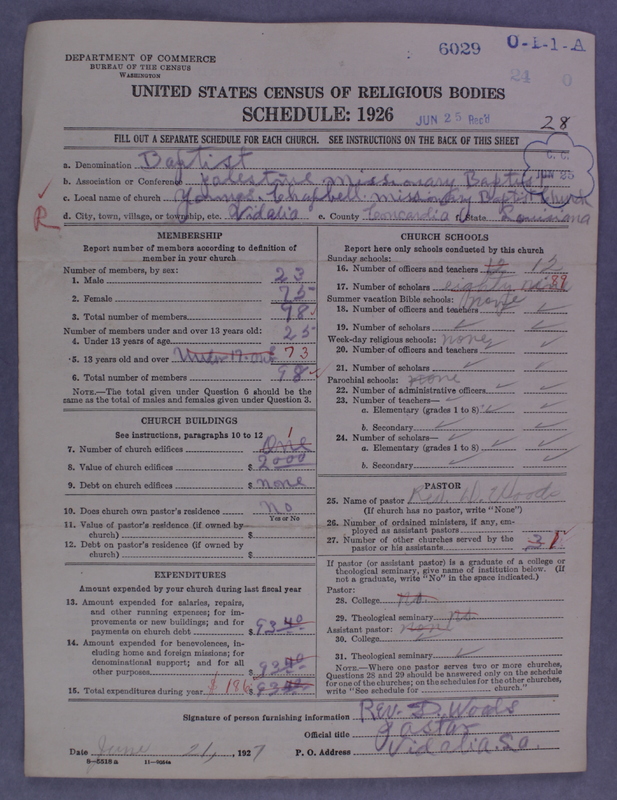 6029 O-1-1-A
DEPARTMENT OF COMMERCE
BUREAU OF THE CENSUS
WASHINGTON
24 0
UNITED STATES CENSUS OF RELIGIOUS BODIES
SCHEDULE: 1926 JUN 25 Rec'd
28
FILL OUT A SEPARATE SCHEDULE FOR EACH CHURCH. SEE INSTRUCTIONS ON THE BACK OF THIS SHEET
a. Denomination Baptist
b. Association or Conference Palestine Missionary Baptist
c. Local name of church Chappell Missionary Baptist Church
R
d. City, town, village, or township, etc. Vidalia e. County Concordia f. State Louisiana
MEMBERSHIP
Report number of members according to definition of
member in your church
Number of members, by sex:
1. Male 23
2. Female 75
3. Total number of members 98
Number of members under and over 13 years old: 25
4. Under 13 years of age
5. 13 years old and over 73
6. Total number of members 98
NOTE.—The total given under Question 6 should be the
same as the total of males and females given under Question 3.
CHURCH BUILDINGS
See instructions, paragraphs 10 to 12 1
7. Number of church edifices one
8. Value of church edifices $ 2000
9. Debt on church edifices $ none
10. Does church own pastor's residence No
Yes or No
11. Value of pastor's residence (if owned by
church) $
12. Debt on pastor's residence (if owned by
church) $
EXPENDITURES
Amount expended by your church during last fiscal year
13. Amount expended for salaries, repairs,
and other running expenses; for im-
provements or new buildings; and for
payments on church debt $ 93.40
14. Amount expended for benevolences, in-
cluding home and foreign missions; for
denominational support; and for all
other purposes $ 93.40
15. Total expenditures during year $ 93.40
CHURCH SCHOOLS
Report here only schools conducted by this church
Sunday schools:
16. Number of officers and teachers 12 12
17. Number of scholars eighty nine 89
Summer vacation Bible schools: none
18. Number of officers and teachers
19. Number of scholars
Week-day religious schools: none
20. Number of officers and teachers
21. Number of scholars
Parochial schools: none
22. Number of administrative officers
23. Number of teachers—
a. Elementary (grades 1 to 8)
b. Secondary
24. Number of scholars—
a. Elementary (grades 1 to 8)
b. Secondary
PASTOR
25. Name of pastor Rev. D. Woods
(If church has no pastor, write "None")
26. Number of ordained ministers, if any, em-
ployed as assistant pastors
27. Number of other churches served by the
pastor or his assistants 3
If pastor (or assistant pastor) is a graduate of a college or
theological seminary, give name of institution below. (If
not a graduate, write "No" in the space indicated.)
Pastor:
28. College no.
29. Theological seminary no.
Assistant pastor: none
30. College
31. Theological seminary
NOTE.—Where one pastor serves two or more churches,
Questions 28 and 29 should be answered only on the schedule
for one of the churches; on the schedules for the other churches,
write "See schedule for church."
Signature of person furnishing information Rev. D. Woods
Official title Pastor
Date June , 1927 P. O. Address Vidalia. La.
8—5518a 11—9084a